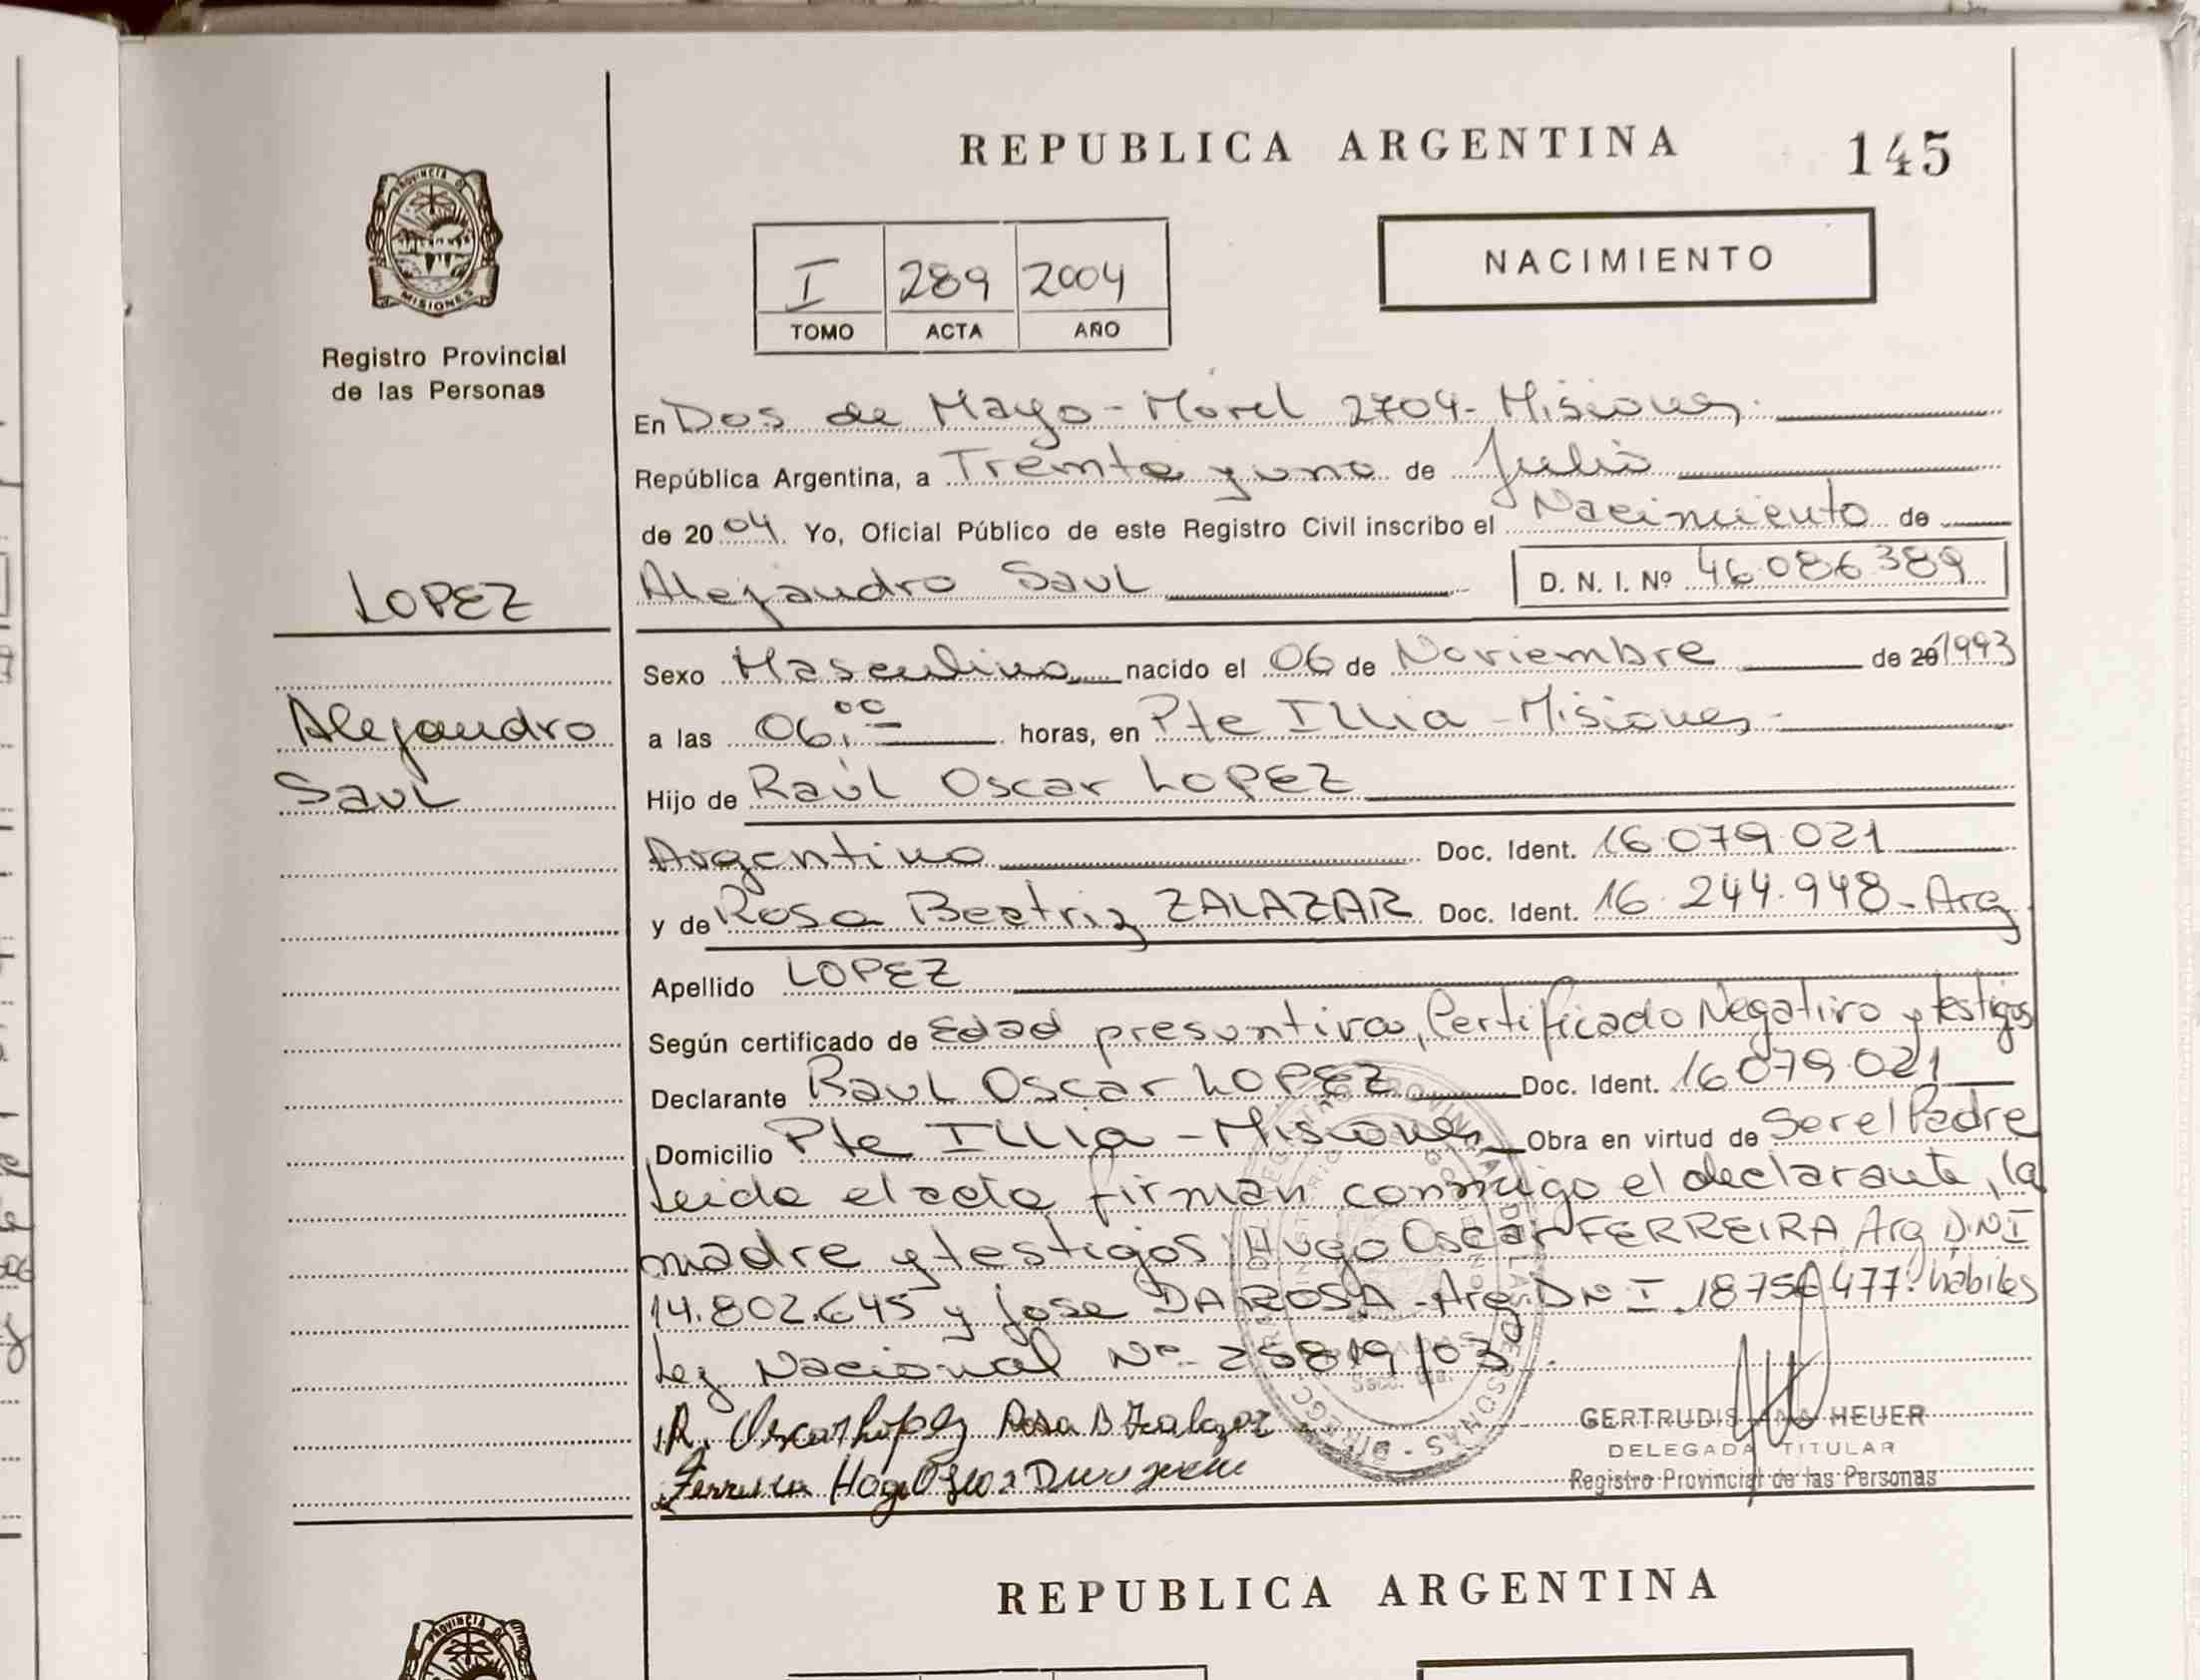 REPUBLICA ARGENTINA
145
PROVINCIA DE
MISIONES
Registro Provincial
de las Personas
I 289 2004
TOMO ACTA AÑO
NACIMIENTO
En Dos de Mayo - Morel 2704 - Misiones.
República Argentina, a Treinta y uno de Julio
de 2004. Yo, Oficial Público de este Registro Civil inscribo el Nacimiento de
LOPEZ
Alejandro Saul D. N. I. Nº 46086389
Sexo Masculino nacido el 06 de Noviembre de 20 1993
Alejandro
a las 06,00 horas, en Pte Illia - Misiones.
Saul
Hijo de Raúl Oscar LOPEZ
Argentino Doc. Ident. 16.079.021
y de Rosa Beatriz ZALAZAR Doc. Ident. 16.244.948 - Arg.
Apellido LOPEZ
Según certificado de Edad presuntiva, Certificado Negativo y testigos
Declarante Raul Oscar LOPEZ Doc. Ident. 16079.021
Domicilio Pte Illia - Misiones Obra en virtud de Ser el Padre
Leida el acta firman conmigo el declarante, la
madre y testigos Hugo Oscar FERREIRA Arg D.N.I
14.802.645 y Jose DA ROSA - Arg. DNI 477. habiles
Ley Nacional Nº 25819/03
R. Oscar Lopez Rosa B Zalazar
GERTRUDIS ANA HEUER
DELEGADA TITULAR
Registro Provincial de las Personas
REPUBLICA ARGENTINA
PROVINCIA DE